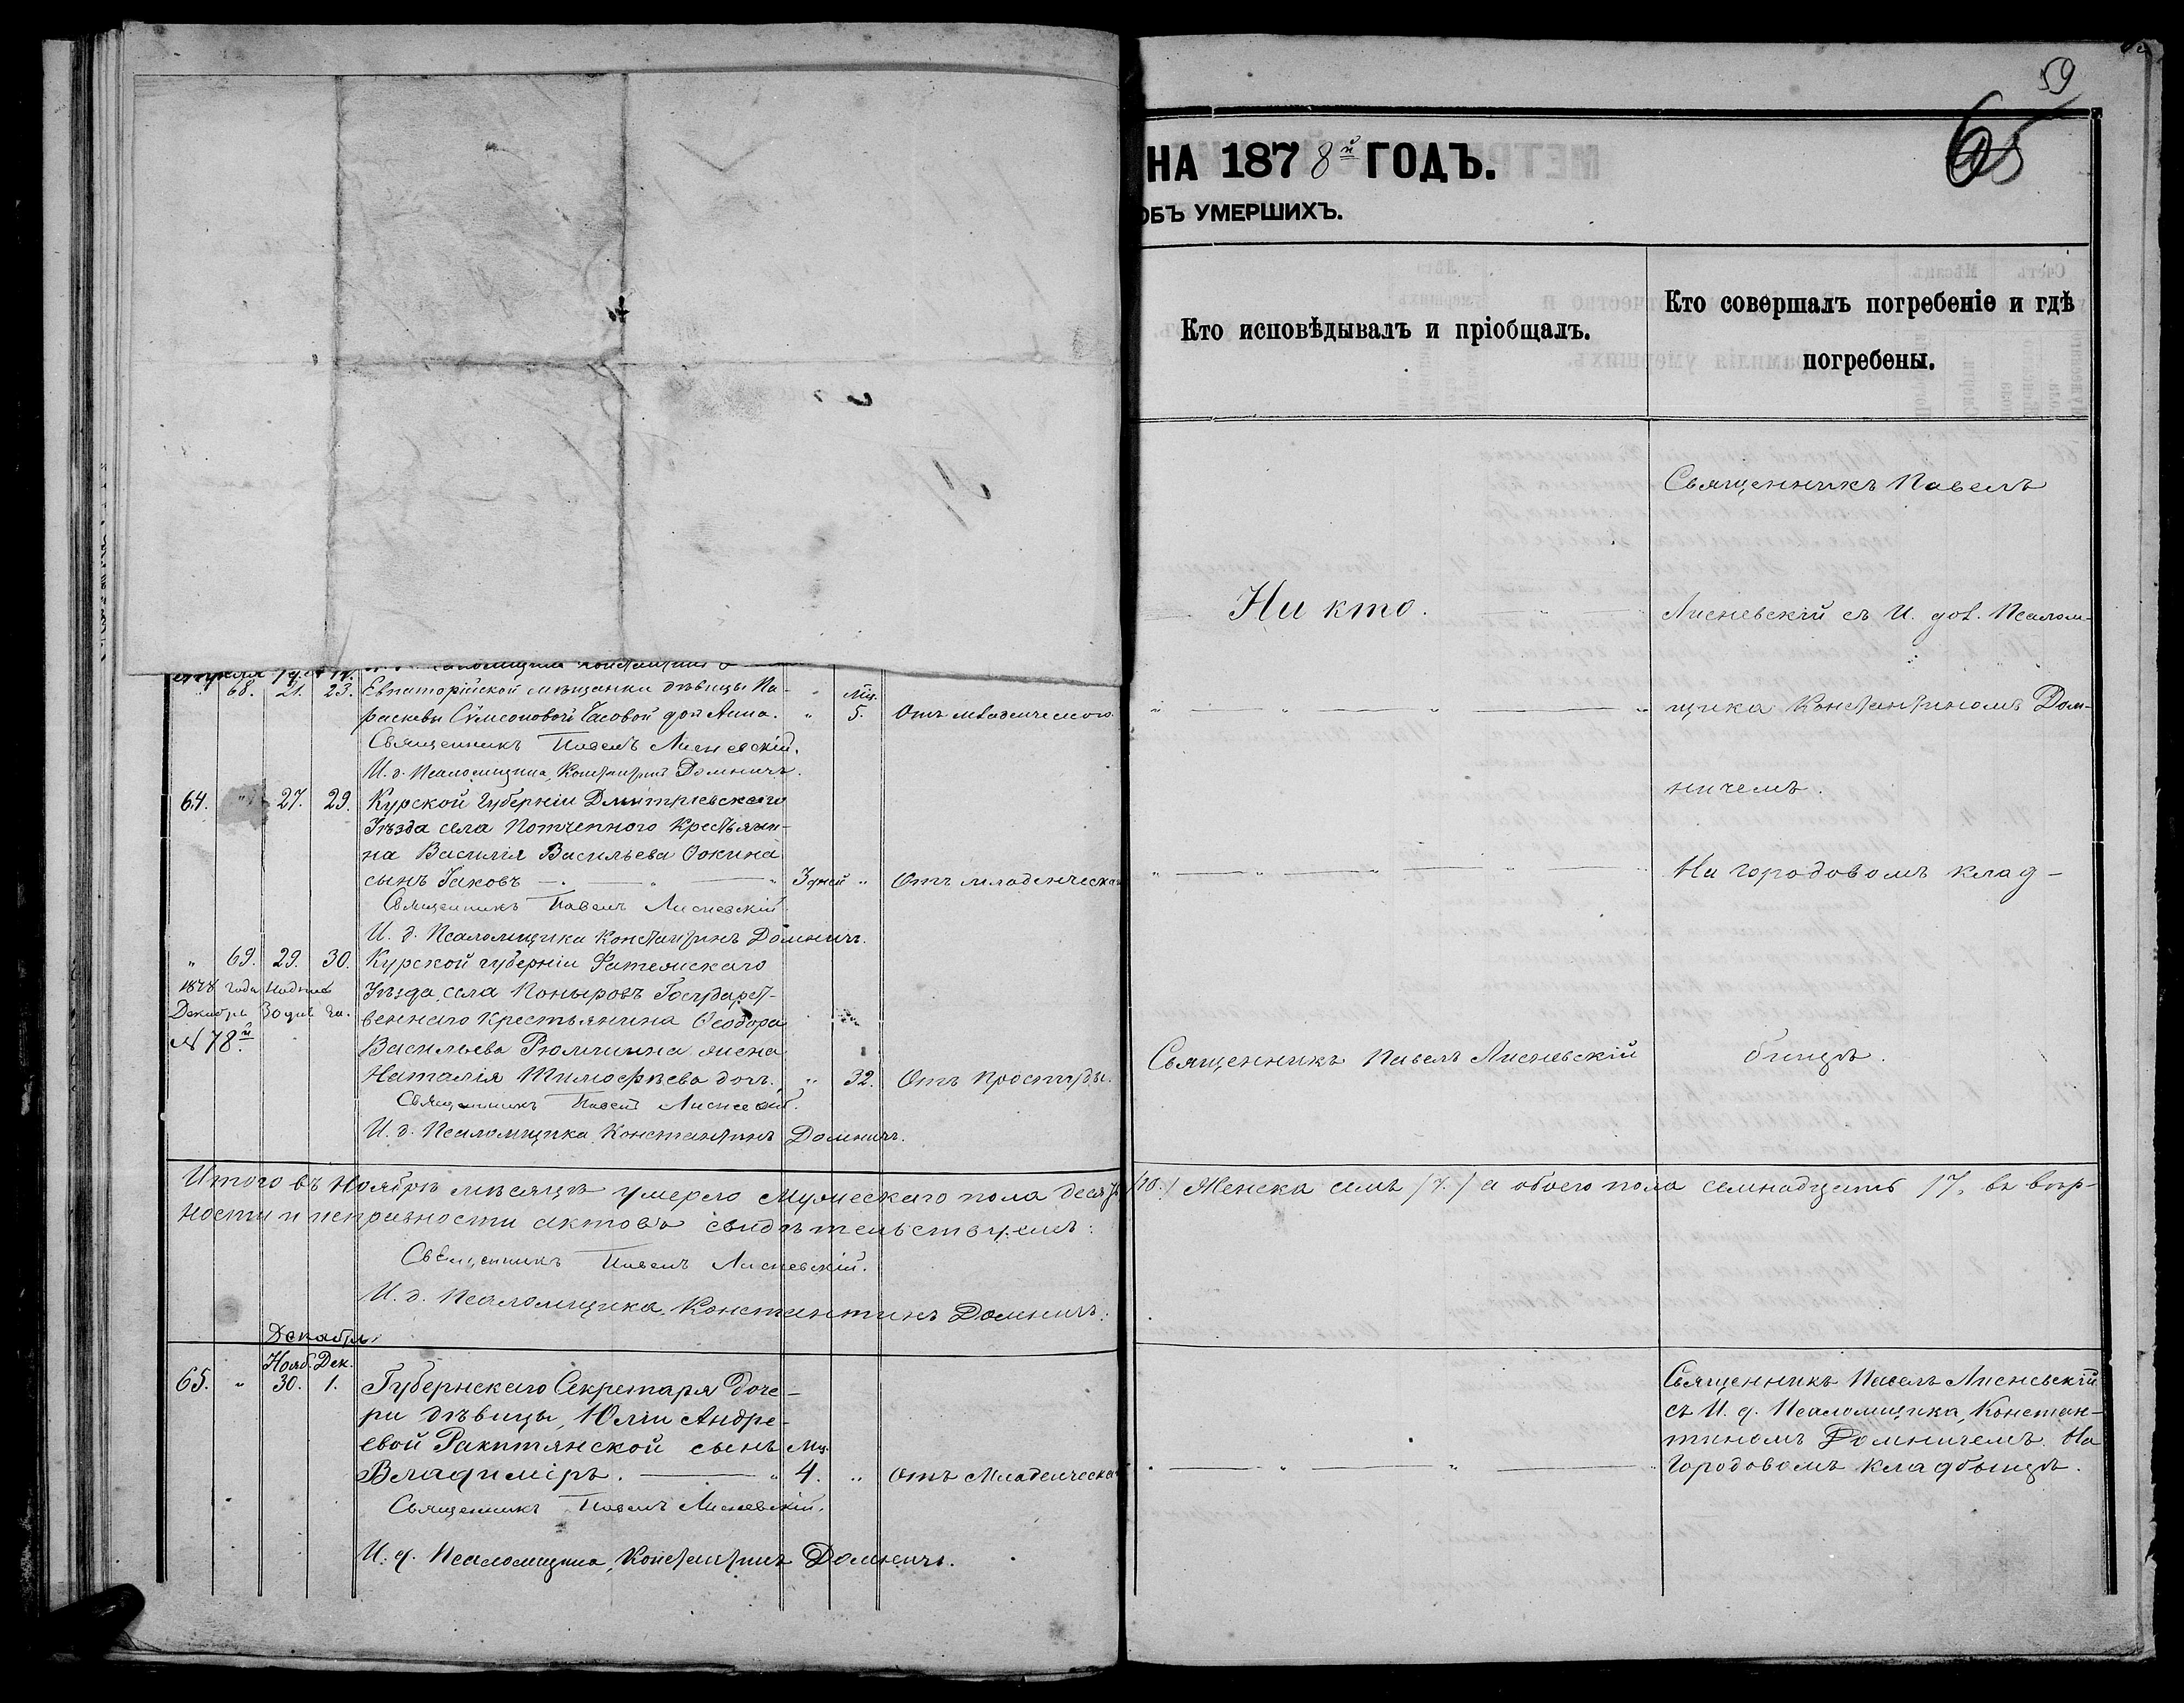 59
65
НА 1878й ГОДЪ.
ОБЪ УМЕРШИХЪ.
Кто исповѣдывалъ и пріобщалъ.
Кто совершалъ погребеніе и гдѣ
погребены.
" 68. 21. 23. Евпаторійской мѣщанки дѣвицы Па-
раскевы Сѵмеоновой Часовой доч Анна. " Мц. 5. Отъ младенческой
Священникъ Павелъ Лисневскій.
И. д. Псаломщика, Константинъ Домничъ.
64. " 27. 29. Курской Губерніи Дмитріевскаго
Уѣзда села Потчепного Крестьяни-
на Василія Васильева Ѳокина
сынъ Іаковъ 3 дней " Отъ младенческа
Священникъ Павелъ Лисневскій
И. д. Псаломщика Константинъ Домничъ.
" 69. 29. 30. Курской губерніи Фатежскаго
1878 года
Уѣзда, села Поныровъ Государст-
Декабрь 30 дня
веннаго Крестьянина Ѳеодора
№ 78й.
Васильева Рюмшина жена
Наталія Тимофѣева доч. " 32. Отъ простуды.
Священникъ Павелъ Лисневскій.
И. д. Псаломщика Константинъ Домничъ.
Ни кто.
Священникъ Павелъ Лисневскій
Священникъ Павелъ
Лисневскій съ И. дол. Псалом-
щика Константиномъ Дом-
ничемъ.
На городовомъ клад-
бищѣ.
Итого въ Ноябрѣ мѣсяцѣ умерло мужескаго пола десять /10./ Женска семь /7./ а обоего пола семнадцать 17. въ вѣр-
ности и исправности актовъ свидѣтельствуемъ:
Священникъ Павелъ Лисневскій.
И. д. Псаломщика, Константинъ Домничъ.
Декабрь
Нояб. Дек.
65. " 30. 1. Губернскаго Секретаря доче-
ри дѣвицы, Юліи Андре-
евой Ракитянской сынъ Мц.
Владиміръ. 4. " Отъ Младенческа
Священникъ Павелъ Лисневскій.
И. д. Псаломщика, Константинъ Домничъ.
Священникъ Павелъ Лисневскій
съ И. д. Псаломщика, Констан-
тиномъ Домничемъ. На
Городовомъ кладбищѣ.